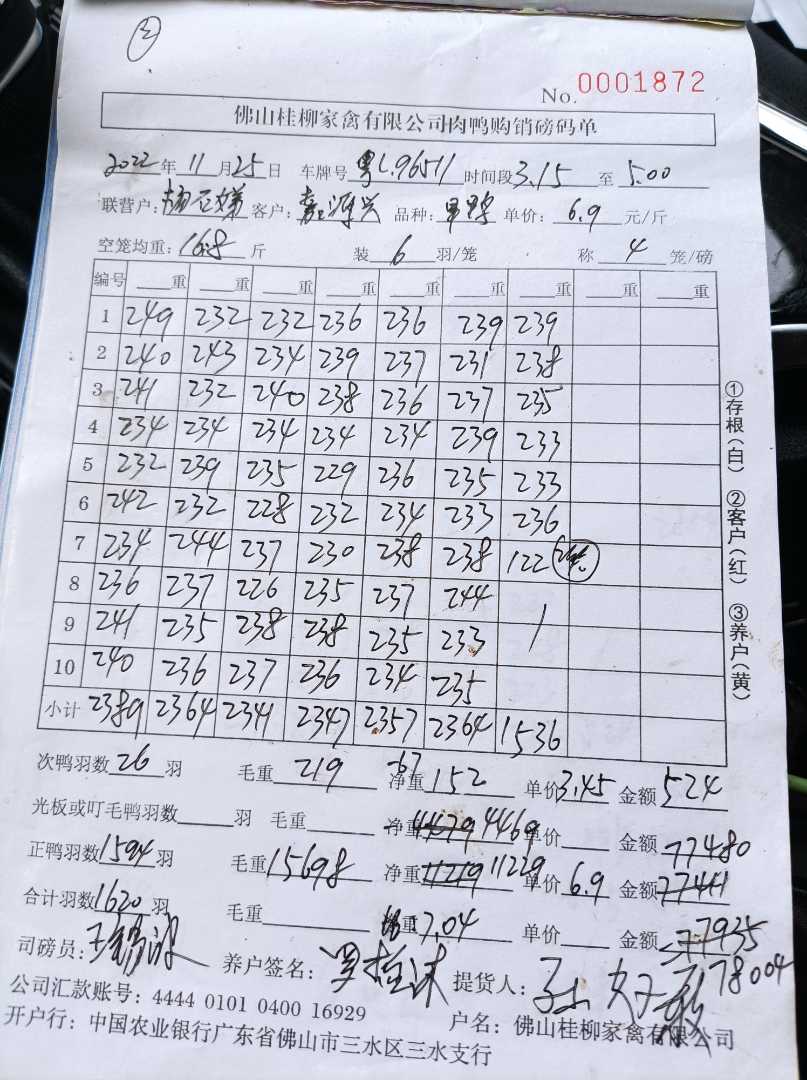 ②
No. 0001872
佛山桂柳家禽有限公司肉鸭购销磅码单
2022年11月25日 车牌号粤L96511 时间段3.15至5.00
联营户: 客户: 嘉源兴 品种: 单价: 6.9元/斤
空笼均重: 16.8斤 装6羽/笼 称4笼/磅
编号 重 重 重 重 重 重 重 重 重
1 249 232 232 236 236 239 239
2 240 243 234 239 237 231 238
3 241 232 240 238 236 237 235
4 234 234 234 234 234 239 233
5 232 239 235 229 236 235 233
6 242 232 228 232 234 233 236
7 234 244 237 230 238 238 122
8 236 237 226 235 237 244
9 241 235 238 238 235 233
10 240 236 237 236 234 235
小计 2389 2364 2341 2347 2357 2364 1536
次鸭羽数26羽 毛重219 -67 净重152 单价3.45 金额524
光板或叮毛鸭羽数羽 毛重 净重4479 4469 单价 金额77480
正鸭羽数1594羽 毛重15698 净重11219 11229 单价6.9 金额77411
合计羽数1620羽 毛重 7.04 单价 金额77935
78004
司磅员: 养户签名: 提货人:
公司汇款账号: 4444 0101 0400 16929 户名: 佛山桂柳家禽有限公司
开户行: 中国农业银行广东省佛山市三水区三水支行
①存根(白) ②客户(红) ③养户(黄)